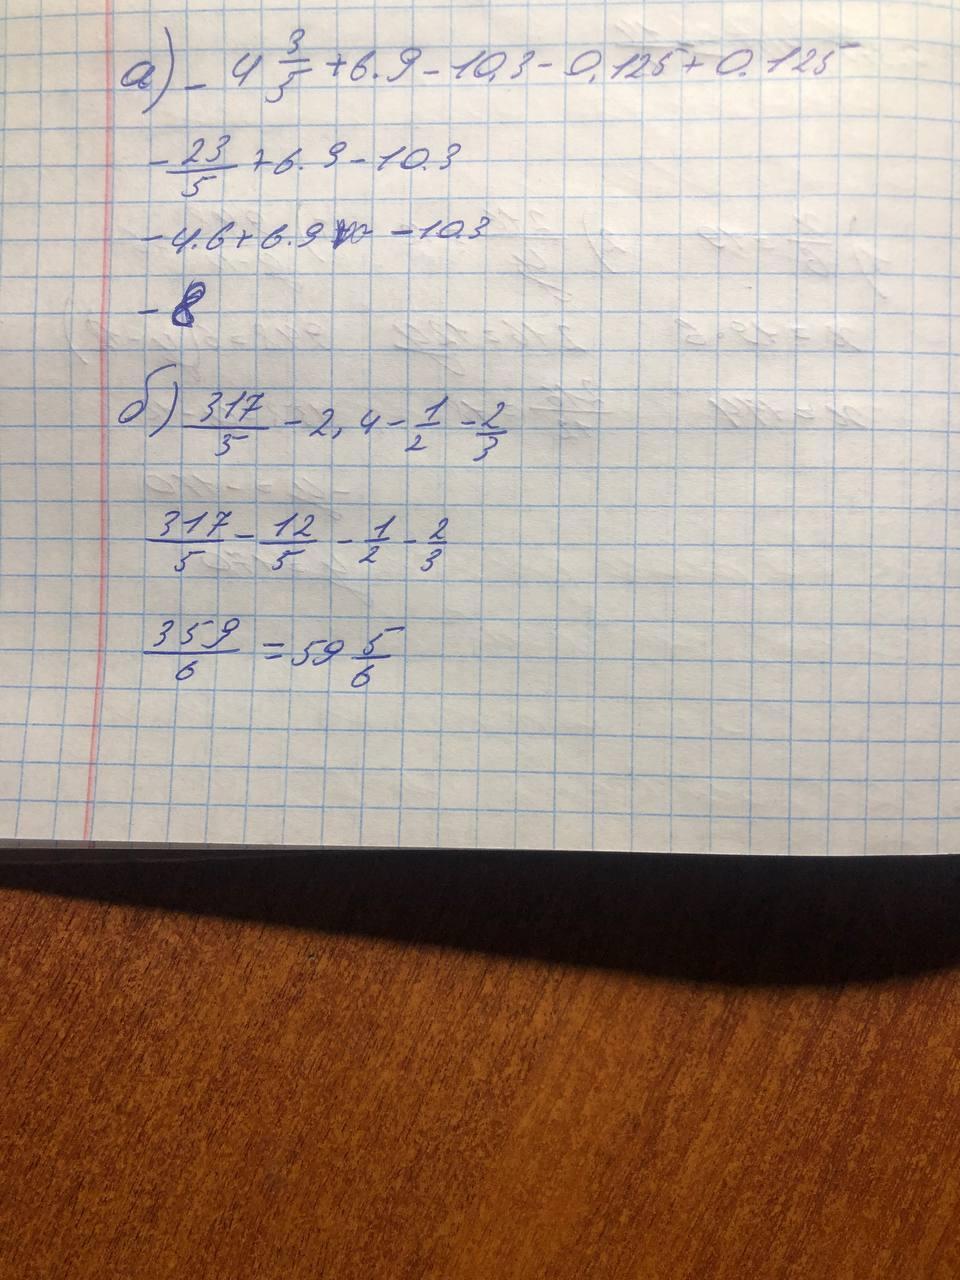 а) - 4 3/5 + 6.9 - 10.3 - 0,125 + 0.125
- 23/5 + 6.9 - 10.3
- 4.6 + 6.9 - 10.3
- 8
б) 317/5 - 2,4 - 1/2 - 2/3
317/5 - 12/5 - 1/2 - 2/3
359/6 = 59 5/6